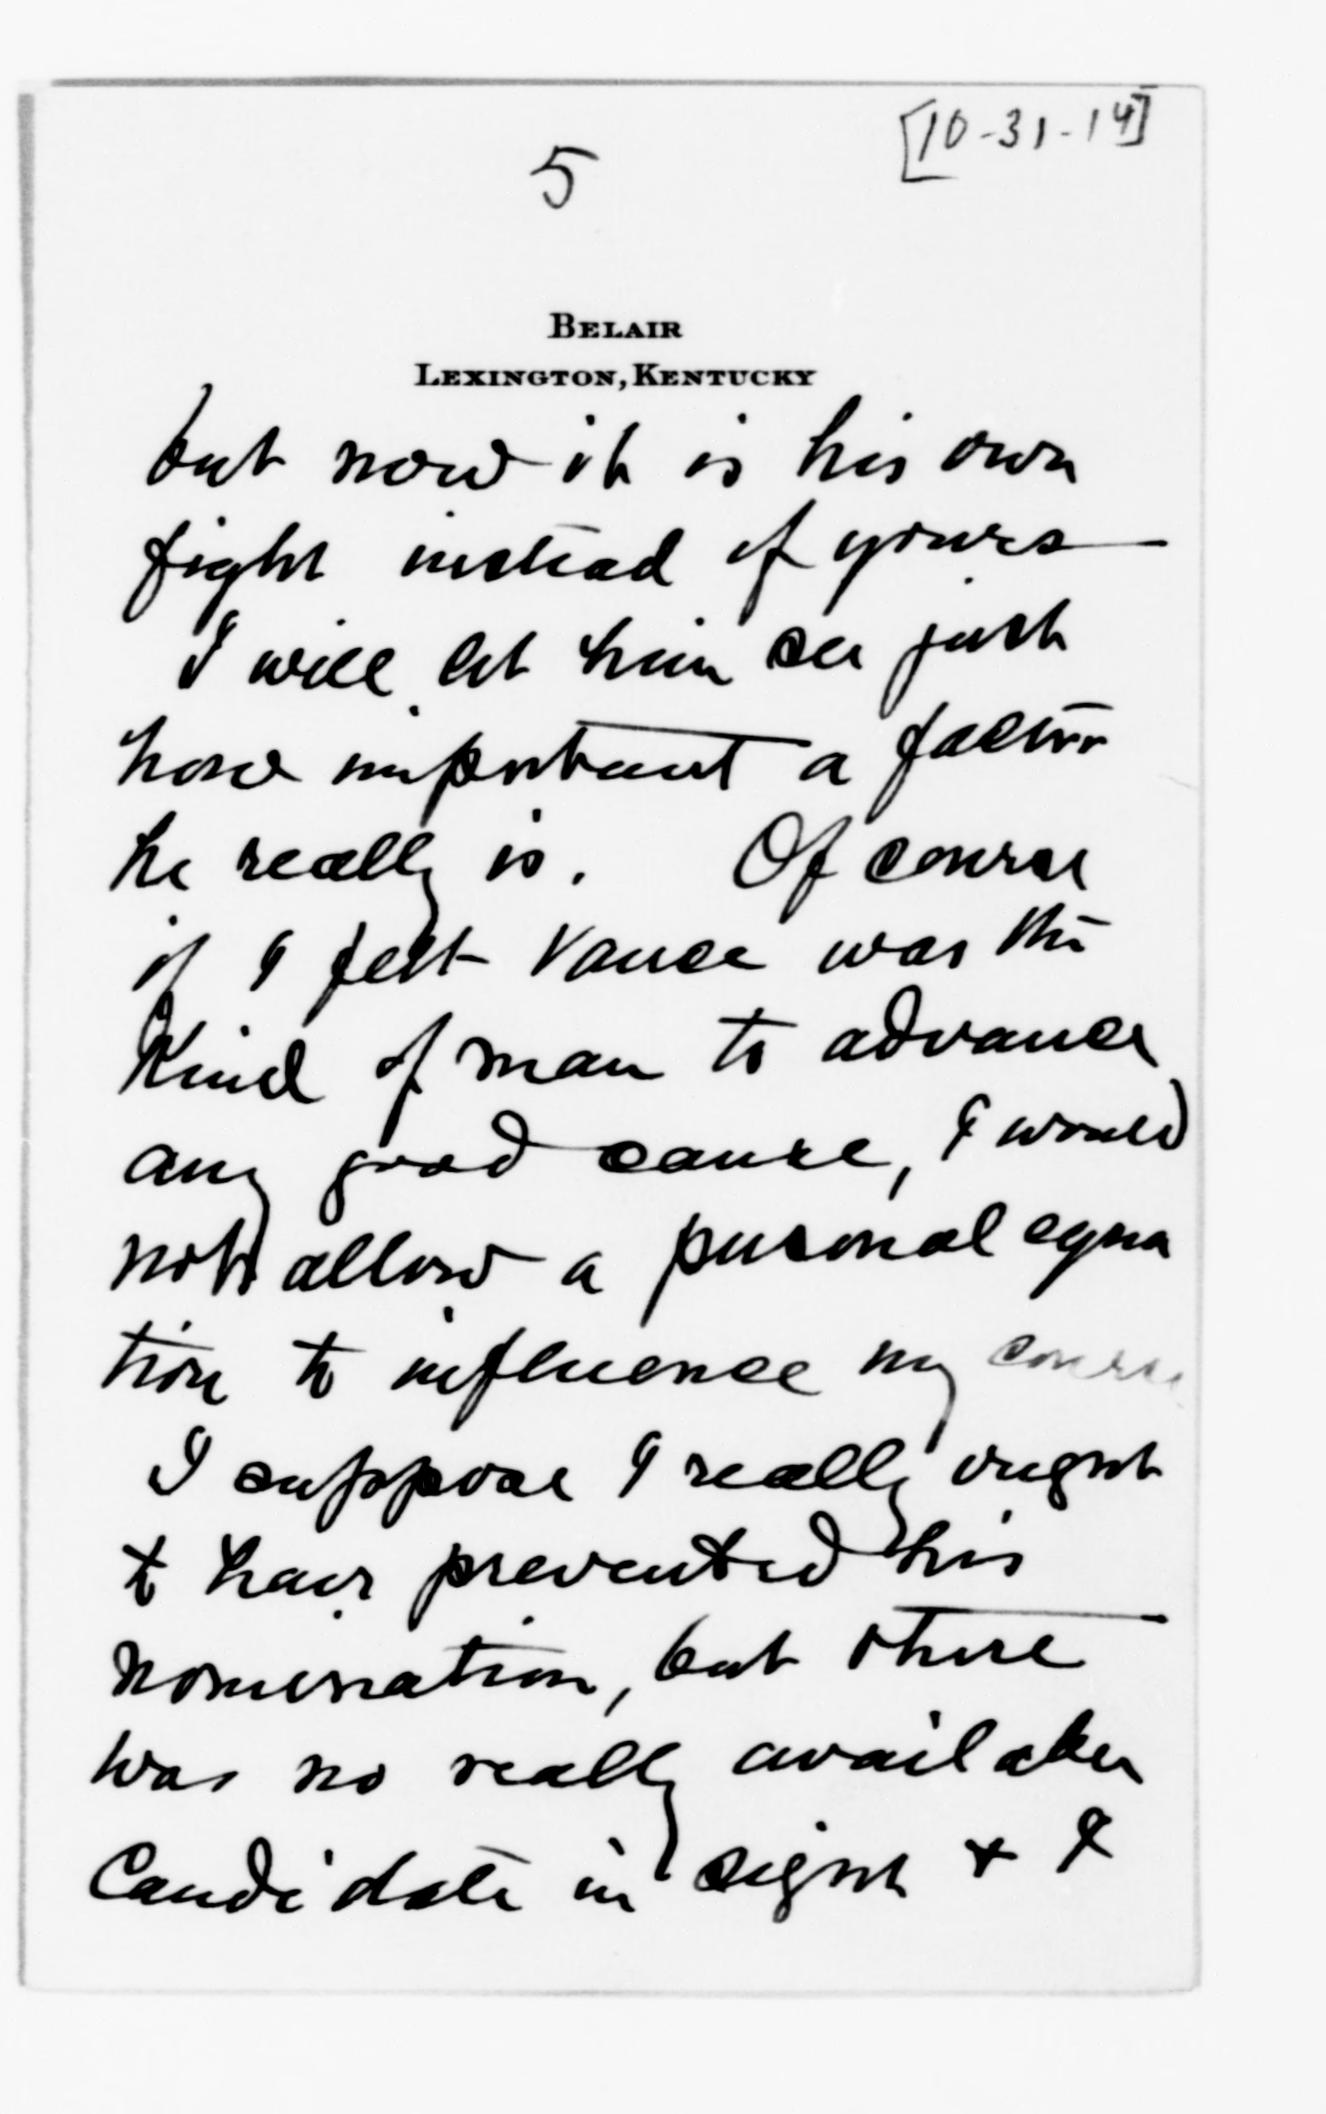 [10-31-14]
5
BELAIR
LEXINGTON, KENTUCKY
but now it is his own
fight instead of yours—
I will let him see just
how important a factor
he really is. Of course
if I felt Vance was the
kind of man to advance
any good cause, I would
not allow a personal equa
tion to influence my course
I suppose I really ought
to have prevented his
nomination, but there
was no really available
candidate in sight & I